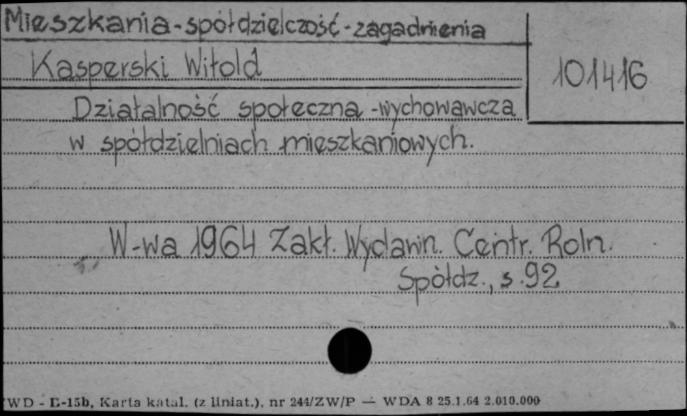 Mieszkania-spółdzielczość-zagadnienia
Kasperski Witold
101416
Działalność społeczna-wychowawcza
w spółdzielniach mieszkaniowych.
W-wa 1964 Zakł. Wydawn. Centr. Roln.
Spółdz., s.92
WD - E-15b, Karta katal. (z liniat.), nr 244/ZW/P — WDA 8 25.1.64 2.010.000